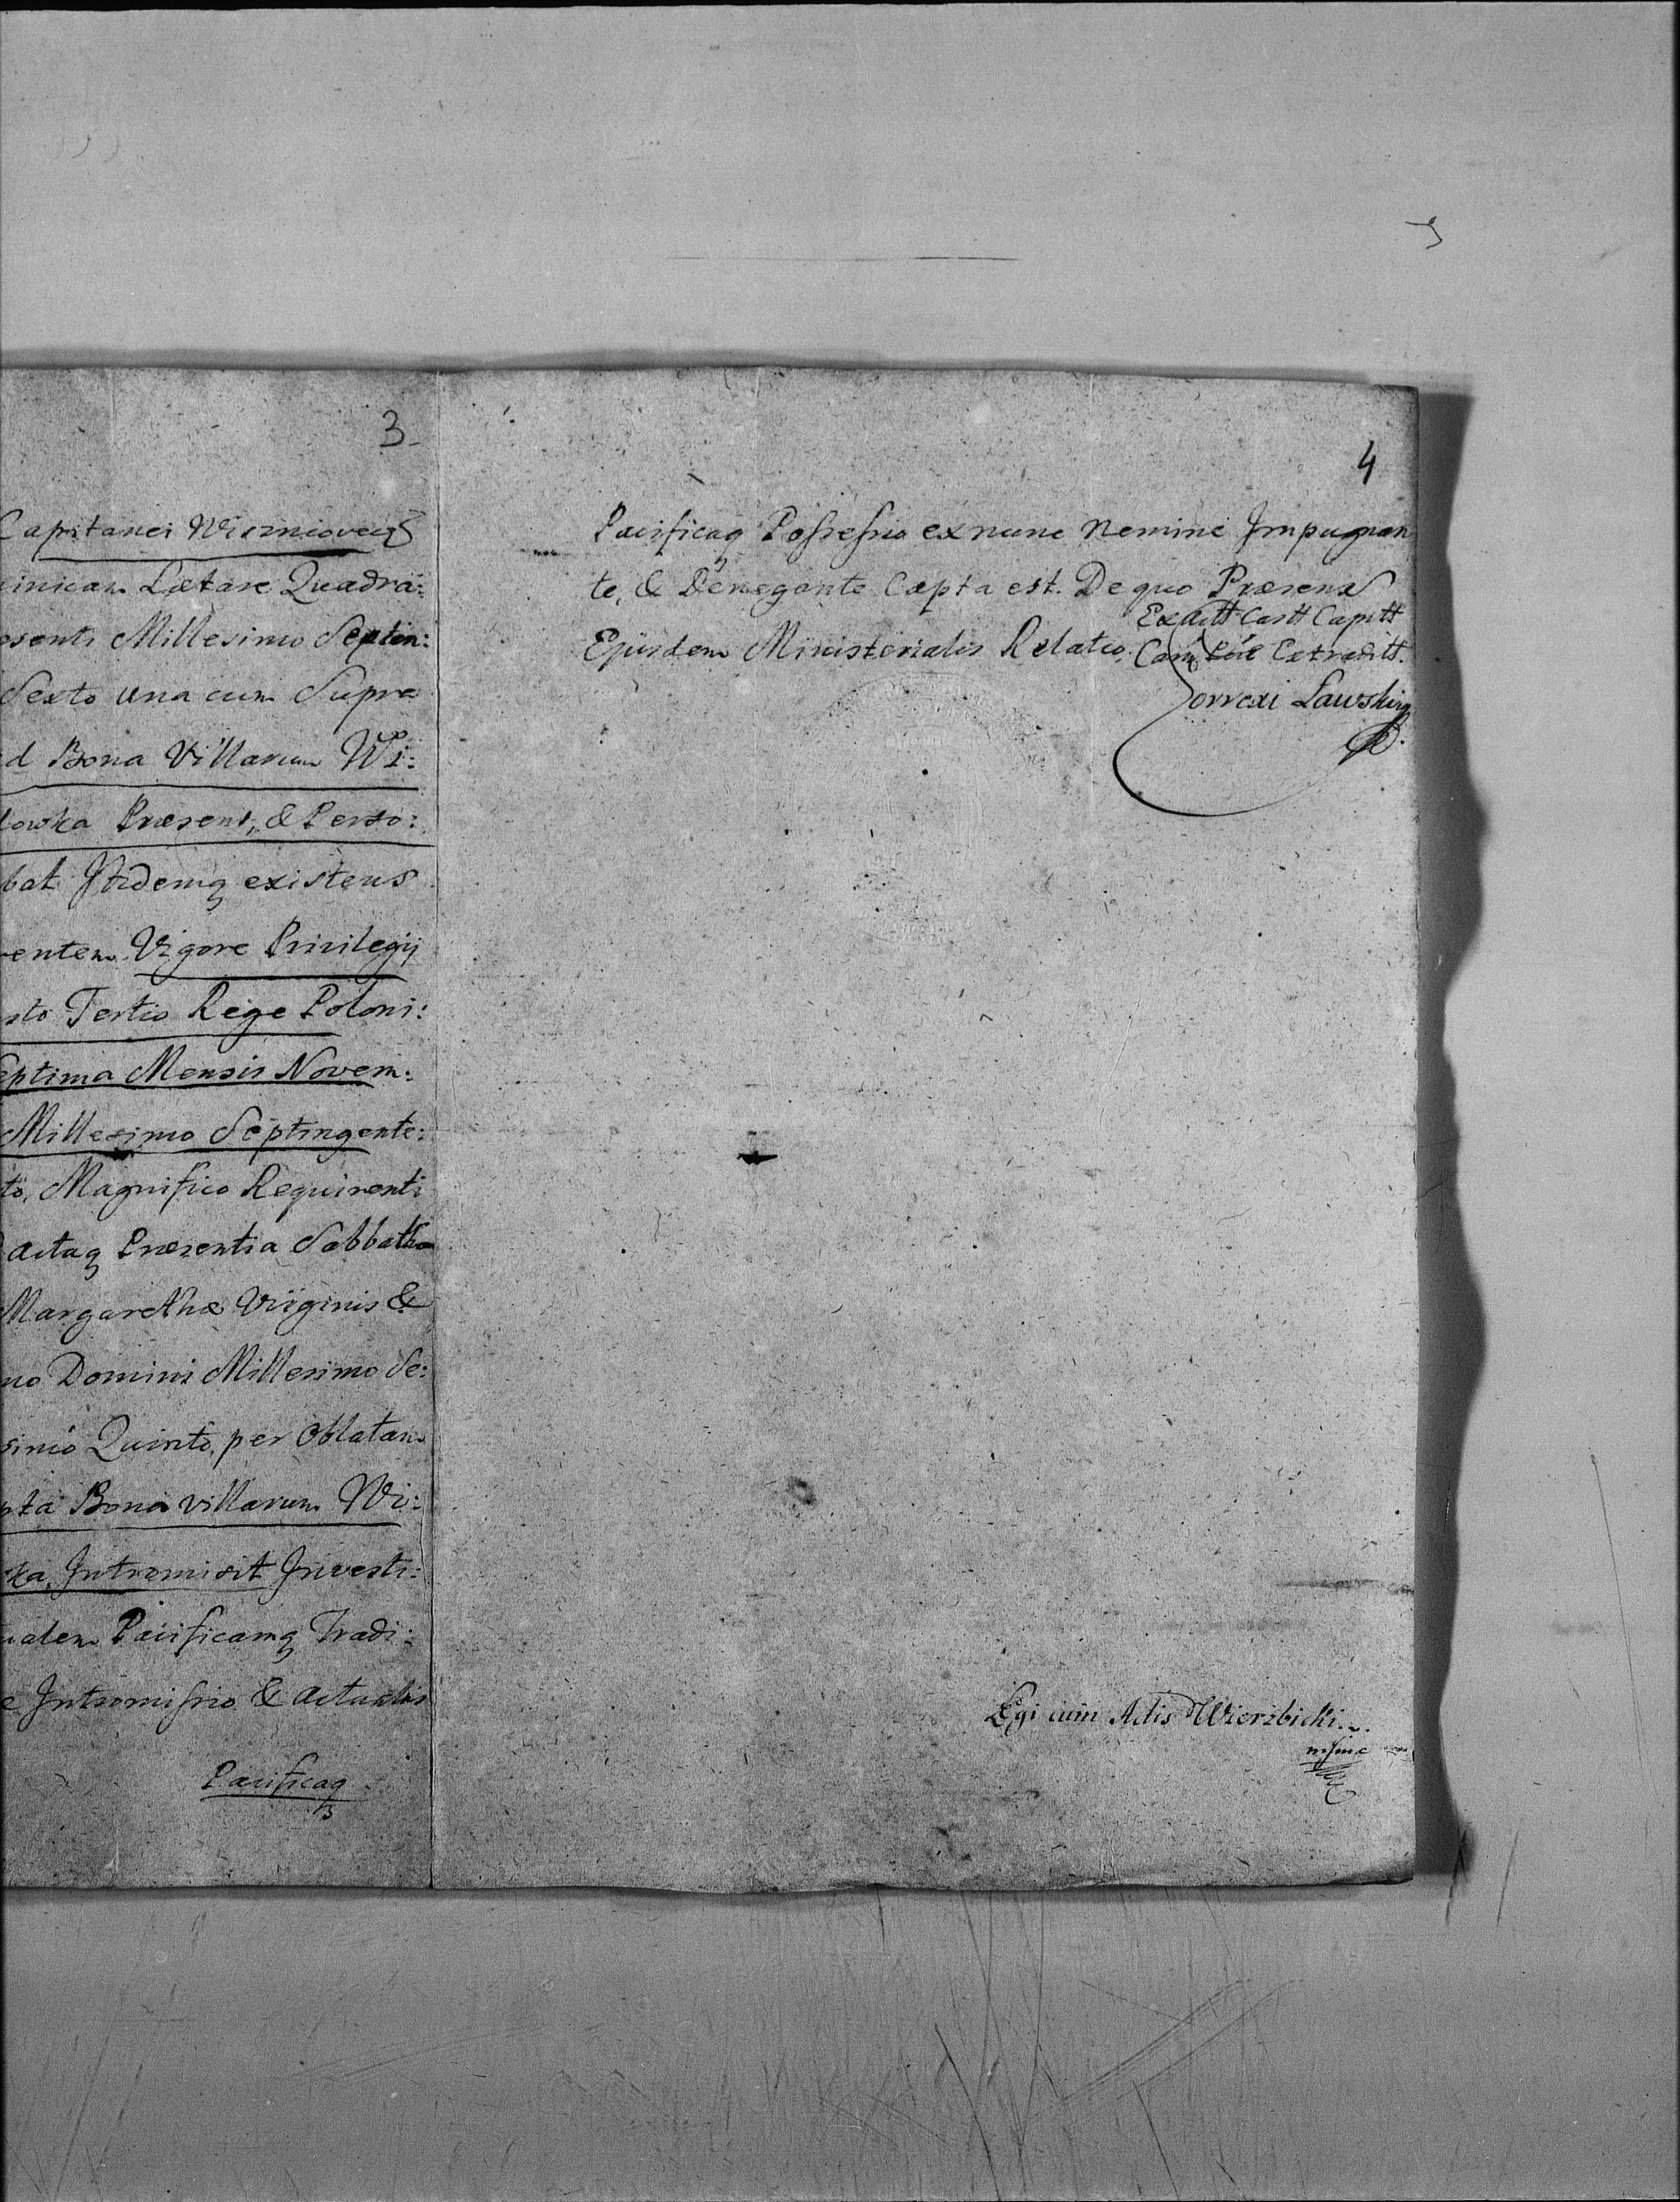 3
Capitanei Wiszniovecz
inicam Lætare Quadra:
esenti Millesimo Septin:
Sexto una cum Supra
d Bona Villarum Wi:
lowka Præsens, & Perso:
bat Ibidemq existens
rentem Vigore Privilegij
sto Tertio Rege Poloni:
eptima Mensis Novem:
Millesimo Septingente:
to, Magnifico Requirenti
actaq Præsentia Sabbatho
Margarethæ Virginis &
no Domini Millesimo Se:
simo Quinto, per Oblatam
pta Bona villarum Wi:
ka, Intromisit Investi:
ualem Pacificamq Tradi:
e Intromissio & actualis
Pacificaq
4
Pacificaq Possessio ex nunc Nemine Impugnan
te, & Denegante Capta est. De quo Præsens
Ejusdem Ministerialis Relatio.
Ex Actt Castt Capitt
Cam Extraditt.
Correxi Lawski
Egi cum Actis Wierzbicki